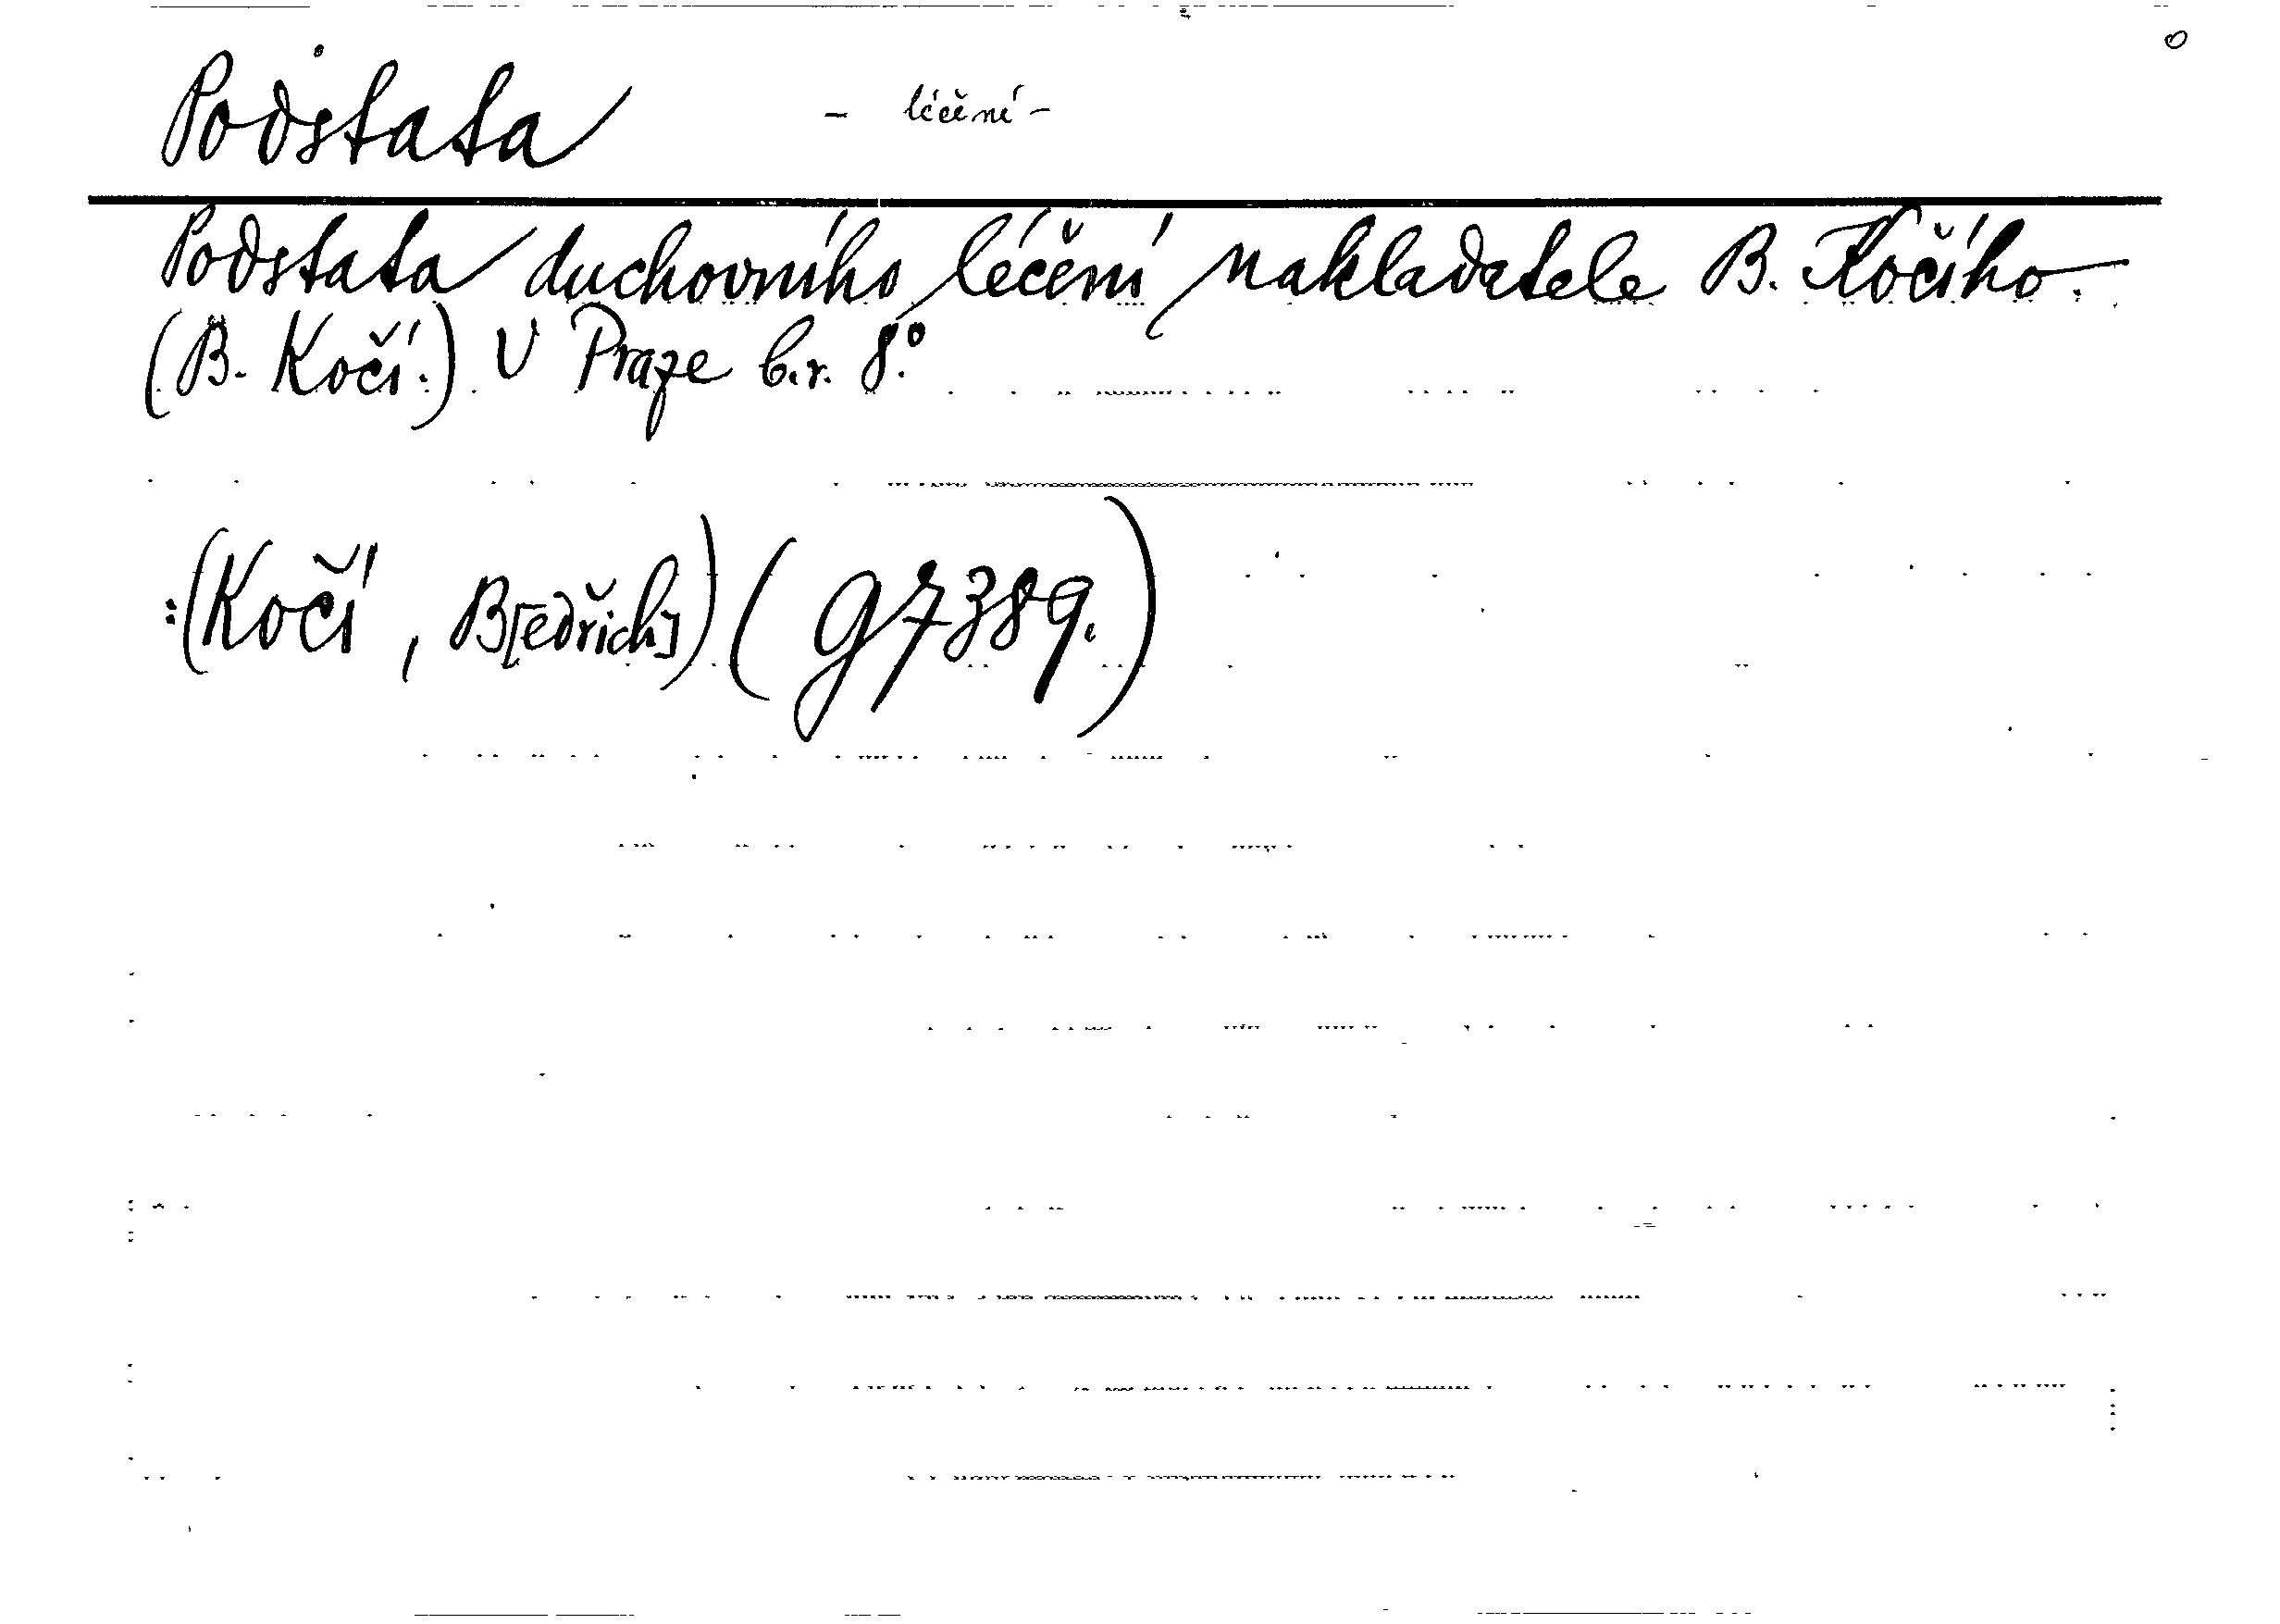 Podstata - léčení -
Podstata duchovního léčení nakladatele B. Kočího.
(B. Kočí.) V Praze b.r. 8°.
:(Kočí, B[edřich]) (g7389.)